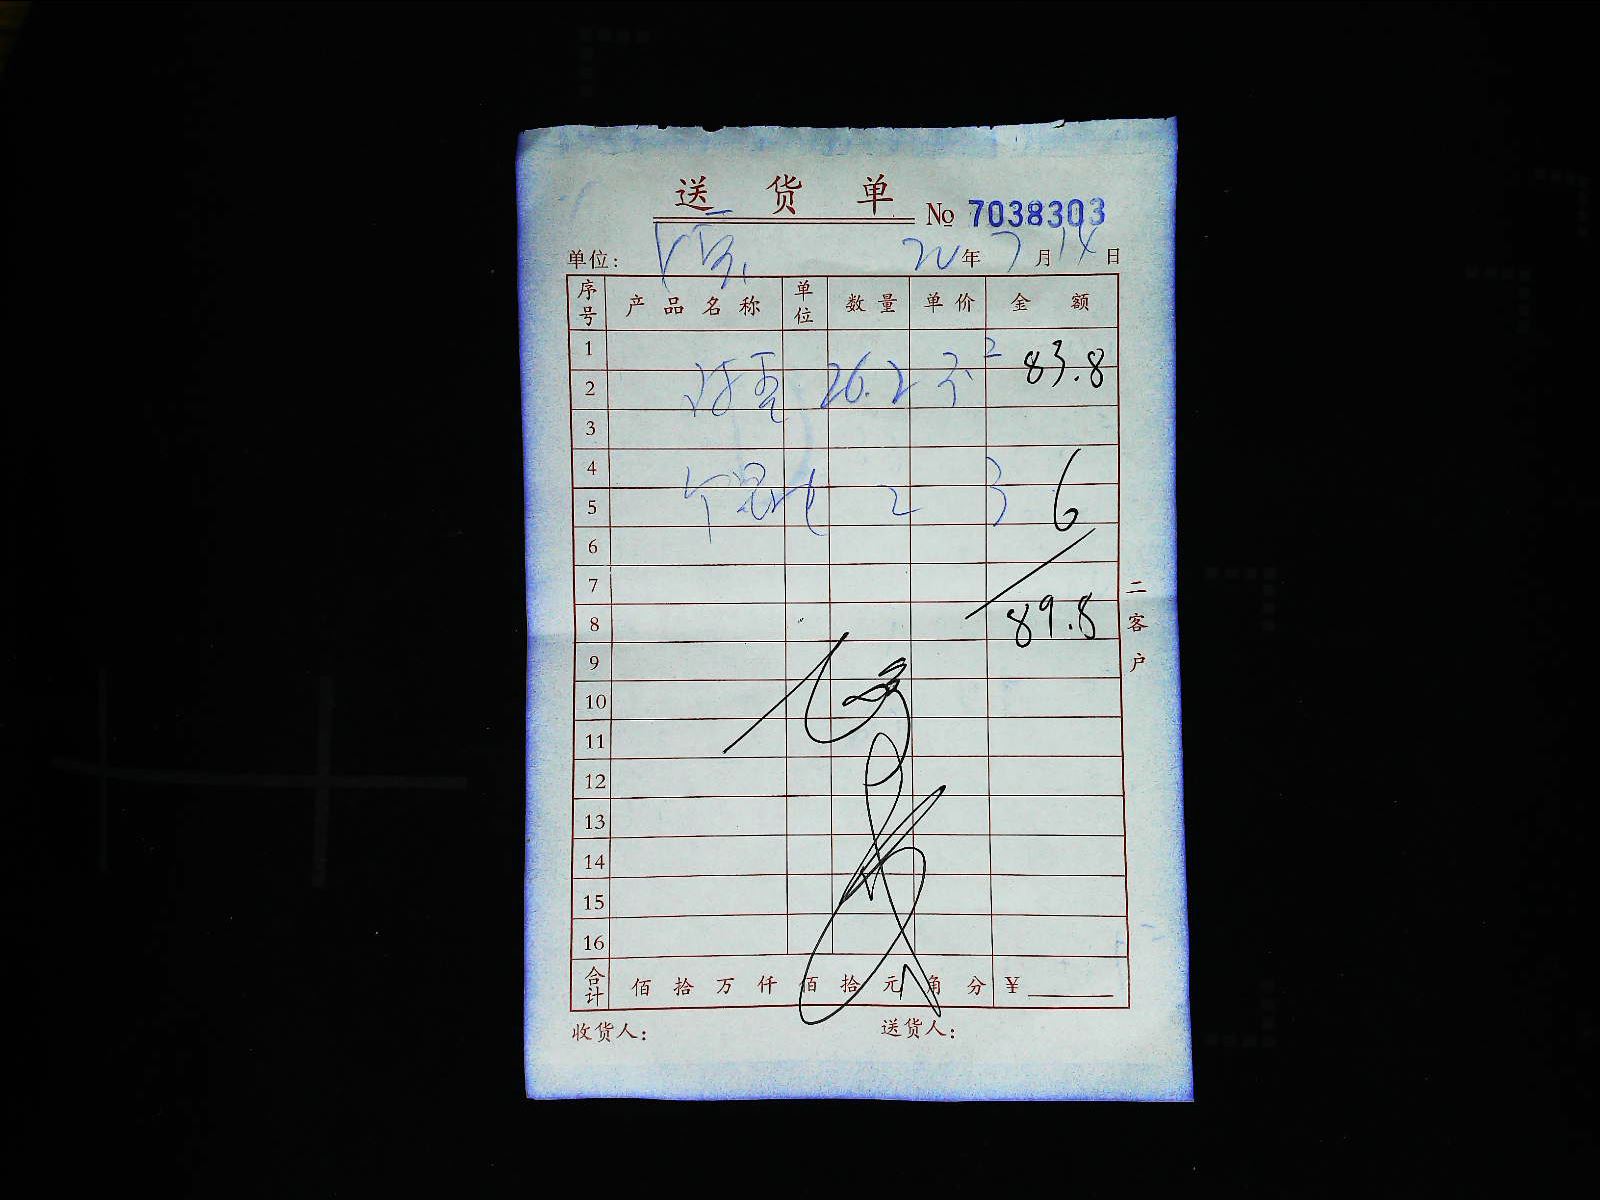 送货单 No 7038303
单位: 20年7月14日
序号 产品名称 单位 数量 单价 金额
1
2 26.2 3.2 83.8
3
4
5 2 3 6
6
7
8 89.8
9
10
11
12
13
14
15
16
合计 佰拾万仟佰拾元角分 ¥
收货人: 送货人:
二客户